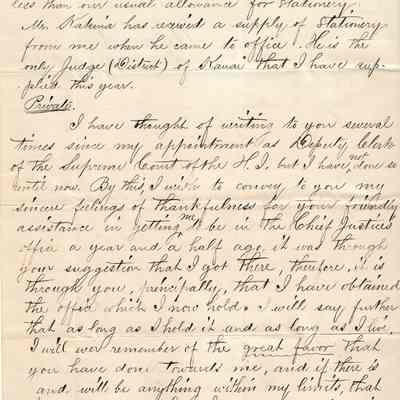 less than our usual allowance for Stationery.
Mr. Kakina has received a supply of Stationery
from me when he came to office. He is the
only Judge (District) of Kauai that I have sup-
plied this year.
Private.
I have thought of writing to you several
times since my appointment as Deputy Clerk
of the Supreme Court of the H.I. but I have not done so
until now. By this, I wish to convey to you my
sincere feelings of thankfulness for your friendly
assistance in getting me to be in the Chief Justice's
office a year and a half ago, it was through
your suggestion that I got there, therefore, it is
through you, principally, that I have obtained
the office which I now hold. I will say further
that as long as I hold it and as long as I live,
I will ever remember of the great favor that
you have done towards me, and if there is
and will be anything within my limits, that